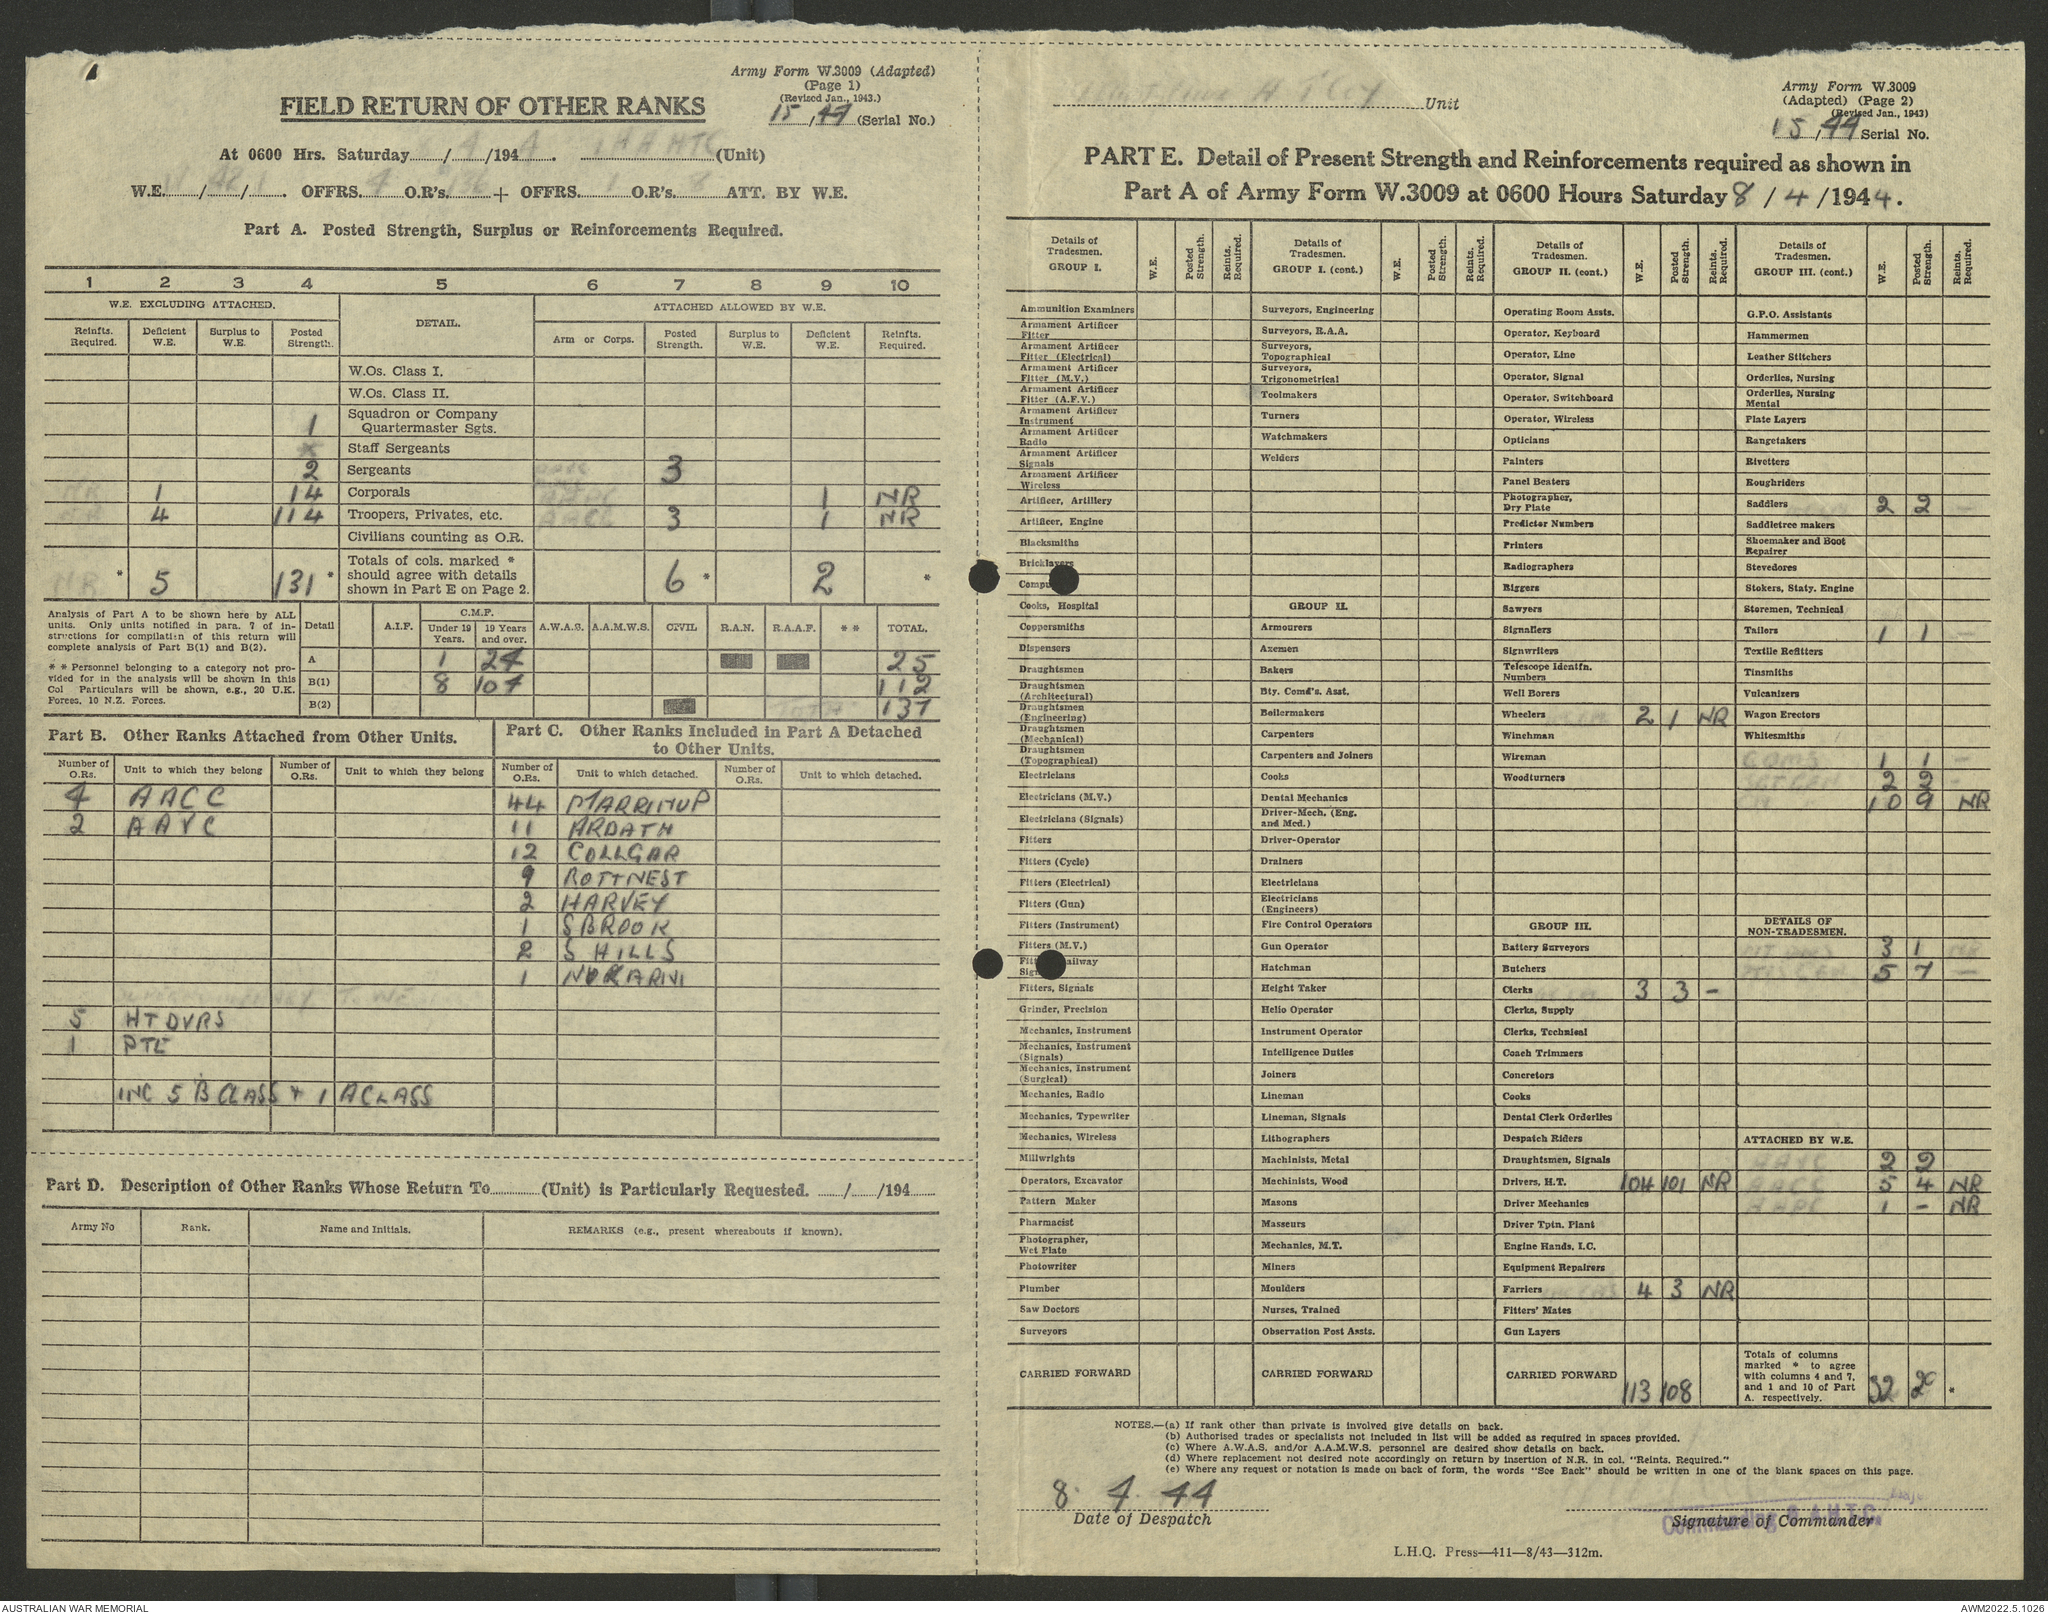 Army Form W.3009 (Adapted)
(Page 1)
(Revised Jan., 1943.)
15/44 (Serial No.)
FIELD RETURN OF OTHER RANKS
At 0600 Hrs. Saturday / 4 /194 (Unit)
W.E. / / . OFFRS. 4 O.R's. + OFFRS. 1 O.R's. 8 ATT. BY W.E.
Part A. Posted Strength, Surplus or Reinforcements Required.
1 2 3 4 5 6 7 8 9 10
W.E. EXCLUDING ATTACHED. DETAIL. ATTACHED ALLOWED BY W.E.
Reinfts. Required. Deficient W.E. Surplus to W.E. Posted Strength. Arm or Corps. Posted Strength. Surplus to W.E. Deficient W.E. Reinfts. Required.
W.Os. Class I.
W.Os. Class II.
1 Squadron or Company Quartermaster Sgts.
Staff Sergeants
2 Sergeants 3
NR 1 14 Corporals AAPC 1 NR
NR 4 114 Troopers, Privates, etc. AACC 3 1 NR
Civilians counting as O.R.
NR * 5 131 * Totals of cols. marked * should agree with details shown in Part E on Page 2. 6 * 2 *
Analysis of Part A to be shown here by ALL units. Only units notified in para. 7 of instructions for compilation of this return will complete analysis of Part B(1) and B(2).
* * Personnel belonging to a category not provided for in the analysis will be shown in this Col Particulars will be shown, e.g., 20 U.K. Forces, 10 N.Z. Forces.
Detail A.I.F. C.M.F. Under 19 Years. 19 Years and over. A.W.A.S. A.A.M.W.S. CIVIL R.A.N. R.A.A.F. * * TOTAL.
A 1 24 25
B(1) 8 104 112
B(2) 137
Part B. Other Ranks Attached from Other Units.
Number of O.Rs. Unit to which they belong Number of O.Rs. Unit to which they belong
4 AACC
2 AAVC
5 HT DVRS
1 PTE
INC 5 B CLASS + 1 A CLASS
Part C. Other Ranks Included in Part A Detached to Other Units.
Number of O.Rs. Unit to which detached. Number of O.Rs. Unit to which detached.
44 MARRINUP
11 ARDATH
12 COLLGAR
9 ROTTNEST
2 HARVEY
1 S BROOK
2 S HILLS
1 NUKARNI
Part D. Description of Other Ranks Whose Return To (Unit) is Particularly Requested. / /194
Army No Rank. Name and Initials. REMARKS (e.g., present whereabouts if known).
Unit
Army Form W.3009
(Adapted) (Page 2)
(Revised Jan., 1943)
15/44 Serial No.
PART E. Detail of Present Strength and Reinforcements required as shown in
Part A of Army Form W.3009 at 0600 Hours Saturday 8 / 4 / 1944.
Details of Tradesmen. GROUP I. W.E. Posted Strength. Reints. Required.
Ammunition Examiners
Armament Artificer Fitter
Armament Artificer Fitter (Electrical)
Armament Artificer Fitter (M.V.)
Armament Artificer Fitter (A.F.V.)
Armament Artificer Instrument
Armament Artificer Radio
Armament Artificer Signals
Armament Artificer Wireless
Artificer, Artillery
Artificer, Engine
Blacksmiths
Bricklayers
Cooks, Hospital
Coppersmiths
Dispensers
Draughtsmen
Draughtsmen (Architectural)
Draughtsmen (Engineering)
Draughtsmen (Mechanical)
Draughtsmen (Topographical)
Electricians
Electricians (M.V.)
Electricians (Signals)
Fitters
Fitters (Cycle)
Fitters (Electrical)
Fitters (Gun)
Fitters (Instrument)
Fitters (M.V.)
Fitters, Signals
Grinder, Precision
Mechanics, Instrument
Mechanics, Instrument (Signals)
Mechanics, Instrument (Surgical)
Mechanics, Radio
Mechanics, Typewriter
Mechanics, Wireless
Millwrights
Operators, Excavator
Pattern Maker
Pharmacist
Photographer, Wet Plate
Photowriter
Plumber
Saw Doctors
Surveyors
CARRIED FORWARD
Details of Tradesmen. GROUP I. (cont.) W.E. Posted Strength. Reints. Required.
Surveyors, Engineering
Surveyors, R.A.A.
Surveyors, Topographical
Surveyors, Trigonometrical
Toolmakers
Turners
Watchmakers
Welders
GROUP II.
Armourers
Axemen
Bakers
Bty. Comd's. Asst.
Boilermakers
Carpenters
Carpenters and Joiners
Cooks
Dental Mechanics
Driver-Mech. (Eng. and Med.)
Driver-Operator
Drainers
Electricians
Electricians (Engineers)
Fire Control Operators
Gun Operator
Hatchman
Height Taker
Helio Operator
Instrument Operator
Intelligence Duties
Joiners
Lineman
Lineman, Signals
Lithographers
Machinists, Metal
Machinists, Wood
Masons
Masseurs
Mechanics, M.T.
Miners
Moulders
Nurses, Trained
Observation Post Assts.
CARRIED FORWARD
Details of Tradesmen. GROUP II. (cont.) W.E. Posted Strength. Reints. Required.
Operating Room Assts.
Operator, Keyboard
Operator, Line
Operator, Signal
Operator, Switchboard
Operator, Wireless
Opticians
Painters
Panel Beaters
Photographer, Dry Plate
Predictor Numbers
Printers
Radiographers
Riggers
Sawyers
Signallers
Signwriters
Telescope Identfn. Numbers
Well Borers
Wheelers 2 1 NR
Winchman
Wireman
Woodturners
GROUP III.
Battery Surveyors
Butchers
Clerks 3 3 -
Clerks, Supply
Clerks, Technical
Coach Trimmers
Concretors
Cooks
Dental Clerk Orderlies
Despatch Riders
Draughtsmen, Signals
Drivers, H.T. 104 101 NR
Driver Mechanics
Driver Tptn. Plant
Engine Hands, I.C.
Equipment Repairers
Farriers 4 3 NR
Fitters' Mates
Gun Layers
CARRIED FORWARD 113 108
Details of Tradesmen. GROUP III. (cont.) W.E. Posted Strength. Reints. Required.
G.P.O. Assistants
Hammermen
Leather Stitchers
Orderlies, Nursing
Orderlies, Nursing Mental
Plate Layers
Rangetakers
Rivetters
Roughriders
Saddlers 2 2 -
Saddletree makers
Shoemaker and Boot Repairer
Stevedores
Stokers, Staty. Engine
Storemen, Technical
Tailors 1 1 -
Textile Refitters
Tinsmiths
Vulcanizers
Wagon Erectors
Whitesmiths
CQMS 1 1 -
SGT GEN 2 2 -
10 9 NR
DETAILS OF NON-TRADESMEN.
3 1 NR
5 7 -
ATTACHED BY W.E.
AAVC 2 2
AACC 5 4 NR
AAPC 1 - NR
Totals of columns marked * to agree with columns 4 and 7, and 1 and 10 of Part A. respectively. 32 *
NOTES.—(a) If rank other than private is involved give details on back.
(b) Authorised trades or specialists not included in list will be added as required in spaces provided.
(c) Where A.W.A.S. and/or A.A.M.W.S. personnel are desired show details on back.
(d) Where replacement not desired note accordingly on return by insertion of N.R. in col. "Reints. Required."
(e) Where any request or notation is made on back of form, the words "See Back" should be written in one of the blank spaces on this page.
8. 4. 44
Date of Despatch
Commanding
Signature of Commander
L.H.Q. Press—411—8/43—312m.
AUSTRALIAN WAR MEMORIAL
AWM2022.5.1026